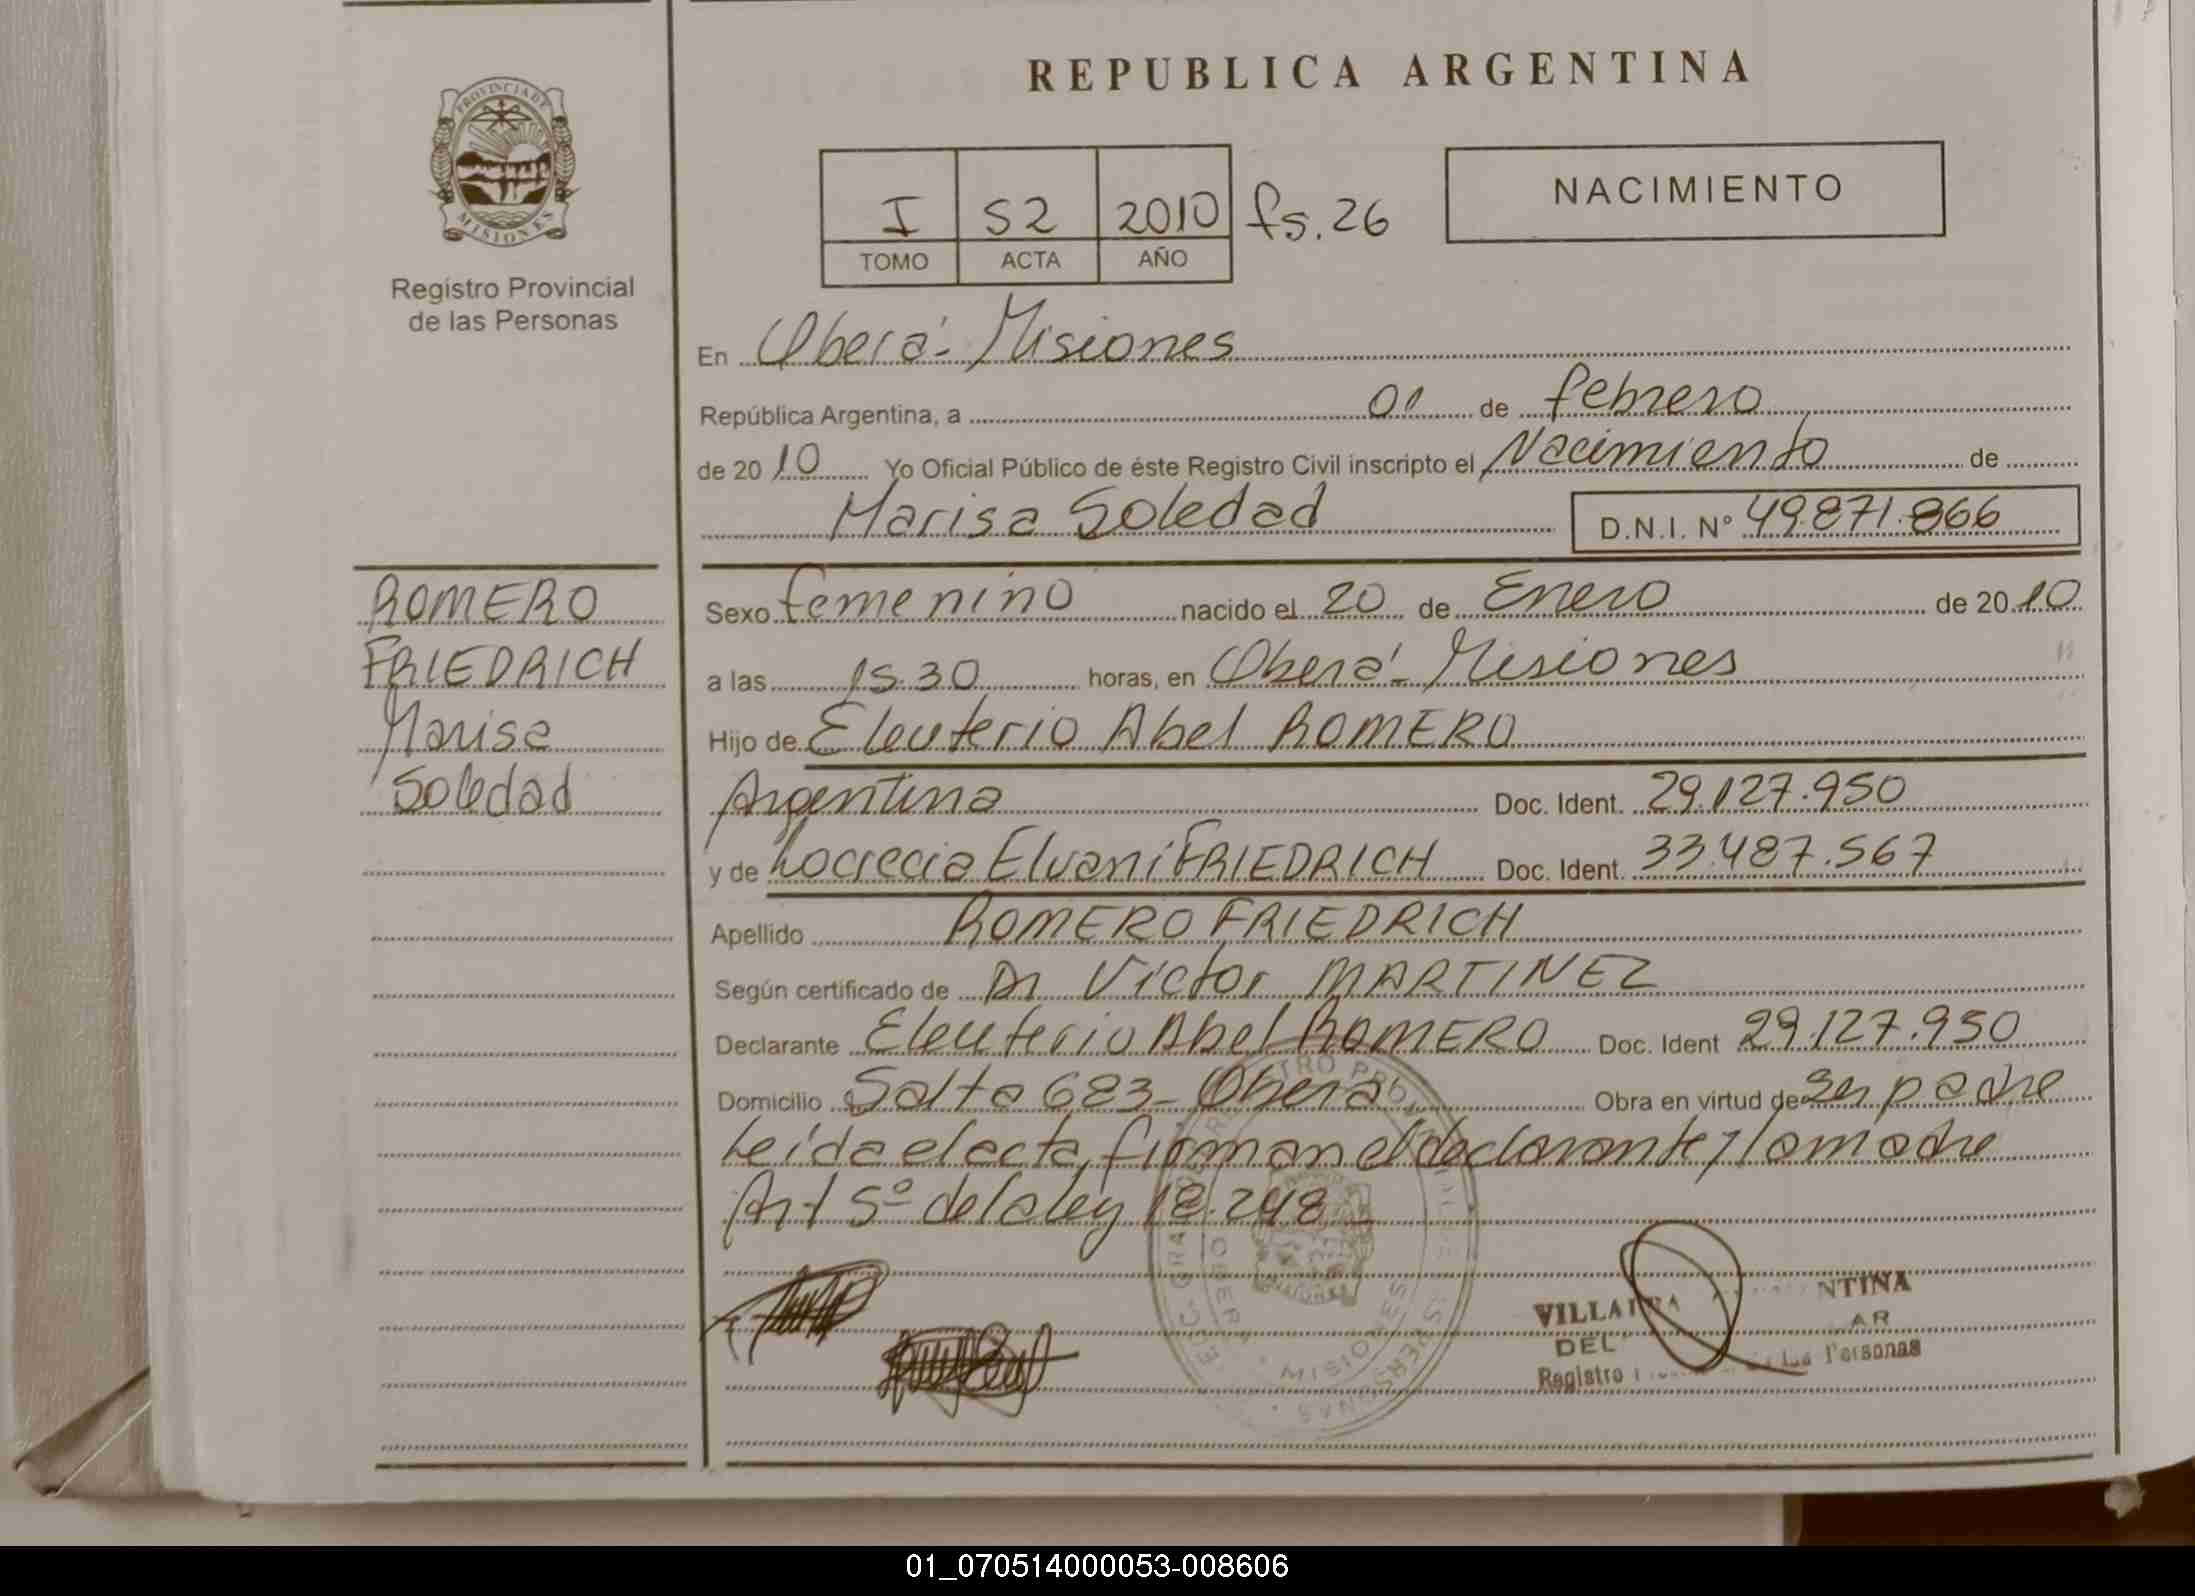 PROVINCIA DE
MISIONES
Registro Provincial
de las Personas
REPUBLICA ARGENTINA
I 52 2010 fs. 26
TOMO ACTA AÑO
NACIMIENTO
En Oberá - Misiones
República Argentina, a 01 de febrero
de 2010 Yo Oficial Público de éste Registro Civil inscripto el Nacimiento de
Marisa Soledad D.N.I. Nº 49.871.866
ROMERO
FRIEDRICH
Marisa
Soledad
Sexo femenino nacido el 20 de Enero de 2010
a las 15.30 horas, en Oberá - Misiones
Hijo de Eleuterio Abel ROMERO
Argentina Doc. Ident. 29.127.950
y de Locrecia Elvani FRIEDRICH Doc. Ident. 33.487.567
Apellido ROMERO FRIEDRICH
Según certificado de Dr Victor MARTINEZ
Declarante Eleuterio Abel ROMERO Doc. Ident 29.127.950
Domicilio Salta 683 - Oberá Obra en virtud de Ser padre
Leída el acta, firman el declarante y la madre
Art 5º de la ley 18.248
MISIONES
DEL
Registro Personas
01_070514000053-008606